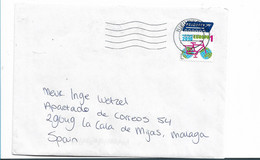 Mevr. Inge Wetzel
Apartado de Correos 54
29649 La Cala de Mijas, Malaga
Spain
1